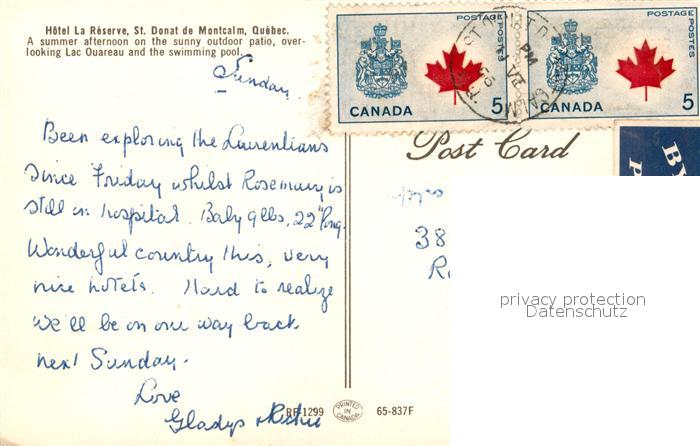 Hôtel La Réserve, St. Donat de Montcalm, Québec.
A summer afternoon on the sunny outdoor patio, over-
looking Lac Ouareau and the swimming pool.
Sunday.
Been exploring the Laurentians
since Friday whilst Rosemary is
still in hospital. Baby 9lbs, 22" long.
Wonderful country this, very
nice hotels. Hard to realize
we'll be on our way back
next Sunday.
Love
Gladys &
RF-1299 PRINTED IN CANADA 65-837F
POSTAGE POSTES
CANADA 5
POSTAGE POSTES
CANADA 5
PM
Post Card
BY
P
38
R
privacy protection
Datenschutz